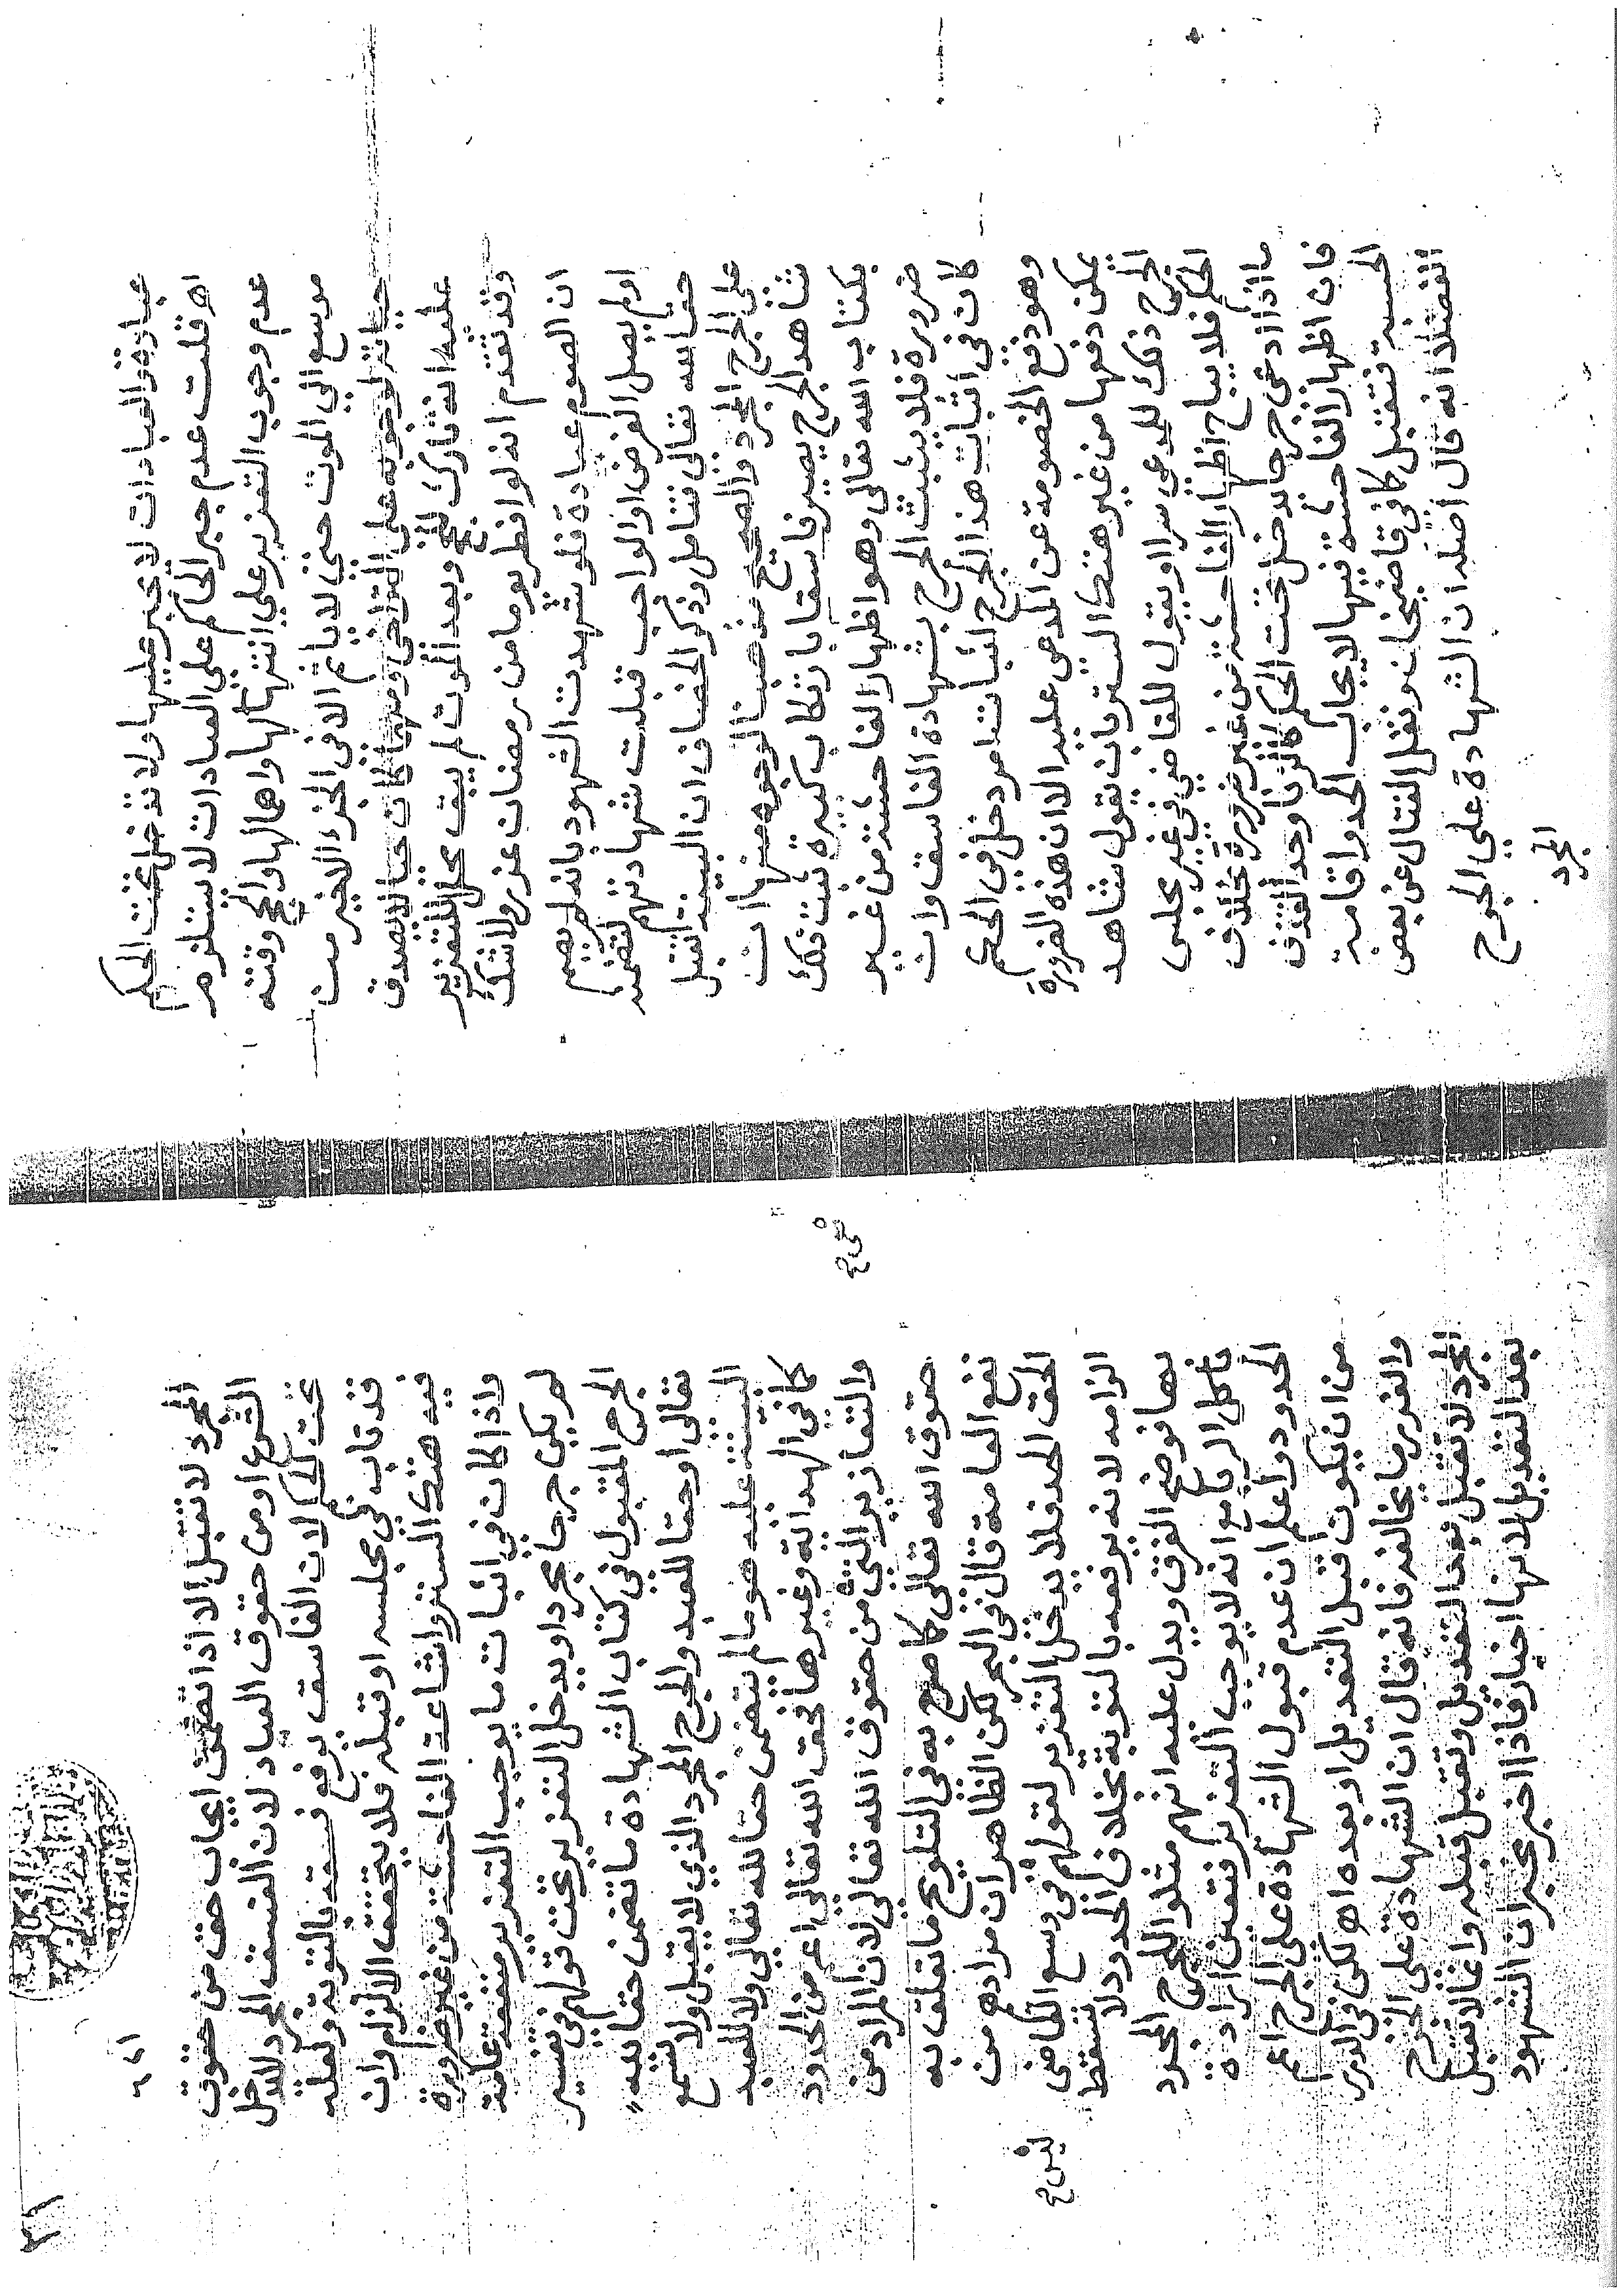 عبارة والعبادات لا يجبر عليها ولا تدخل تحت الحكم
اه قلت عدم جبر الحاكم على العبادات لا يستلزم
عدم وجوب التعزير على انتهاكها واهمالها والحج وقته
موسع الى الموت حتى لا ياثم الا في الجزء الاخير من
حياته لوجوبه على التراخي ومهما كان حيا لا تصدق
عليه انه تارك للحج وبعد الموت لم يبق محل للتعزير
وقد تقدم انه لو افطر يوما من رمضان عزر ولا شك
ان الصوم عبادة فلو شهدت الشهود بانه لم يصم
او لم يصل الفرض او الواجب قبلت شهادتهم لتضمنه
حقا لله تعالى فتامل وذكر الخصاف ان البينة تقبل
على الجرح المجرد والصحيح مذهبنا لوجوه منها ان
شاهد الجرح يصير فاسقا بارتكاب كبيرة ثبت تلك
بكتاب الله تعالى وهو اظهار الفاحشة من غير
ضرورة فلا يثبت الجرح بشهادة الفاسق وان
كان في اثبات هذا الجرح اثبات امر دخل في الحكم
وهو دفع الخصومة عن المدعى عليه الا ان هذه الضرورة
يمكن دفعها من غير هتك الستر بان يقول شاهد
الجرح ذلك للمدعي سرا او يقول للقاضي في غير مجلس
الحكم فلا يباح اظهار الفاحشة من غير ضرورة بخلاف
ما اذا ادعى جرحا يدخل تحت الحكم كالزنا وحد القذف
فان اظهار الفاحشة فيها لايجاب الحد واقامة
الحسبة فتقبل كما في قاضيخان ونقل القتال عن بعض
الفضلا انه قال اصله ان الشهادة على الجرح
المجرد
المجرد لا تقبل الا اذا تضمن ايجاب حق من حقوق
الشرع او من حقوق العباد لان الفسق المجرد لا يدخل
تحت الحكم لان الفاسق يرفع فسقه بالتوبة ولعله
قد تاب في مجلسه او قبله فلا يتحقق الالزام وان
فيه هتك الستر واشاعة الفاحشة من غير ضرورة
واذا كان في اثبات ما يوجب التعزير منفعة عامة
لم يكن جرحا مجردا ويدخل التعزير تحت قولهم في تفسير
الجرح المقبول في كتاب الشهادة ما تضمن حقا لله
تعالى او حقا للعبد والجرح المجرد الذي لا يقبل ولا تسمع
البينة عليه هو ما لم يتضمن حقا لله تعالى ولا للعبد
كما في الهداية وغيرها فحق الله تعالى اعم من الحدود
والتعازير التي من حقوق الله تعالى لان المراد من
حقوق الله تعالى كما صرح به في التلويح ما تعلق به
نفع العامة قال في البحر لكن الظاهر ان مرادهم من
الحق الحد فلا يدخل التعزير لقولهم في وسع القاضي
الزامه لانه يرفعه بالتوبة بخلاف الحدود لا تسقط
بها فوضح الفرق ويدل عليه انهم مثلوا للجرح المجرد
باكل الربا مع انه لا يوجب التعزير فتعين ارادة
الحدود واعلم ان عدم قبول الشهادة على الجرح اعم
من ان يكون قبل التعديل او بعده اه لكن في الدرر
والغرر ما يخالفه فانه قال ان الشهادة على الجرح
المجرد لا تقبل بعد التعديل وتقبل قبله وانما لا تقبل
بعد التعديل لانها اخبار فاذا اخبر مخبر ان الشهود